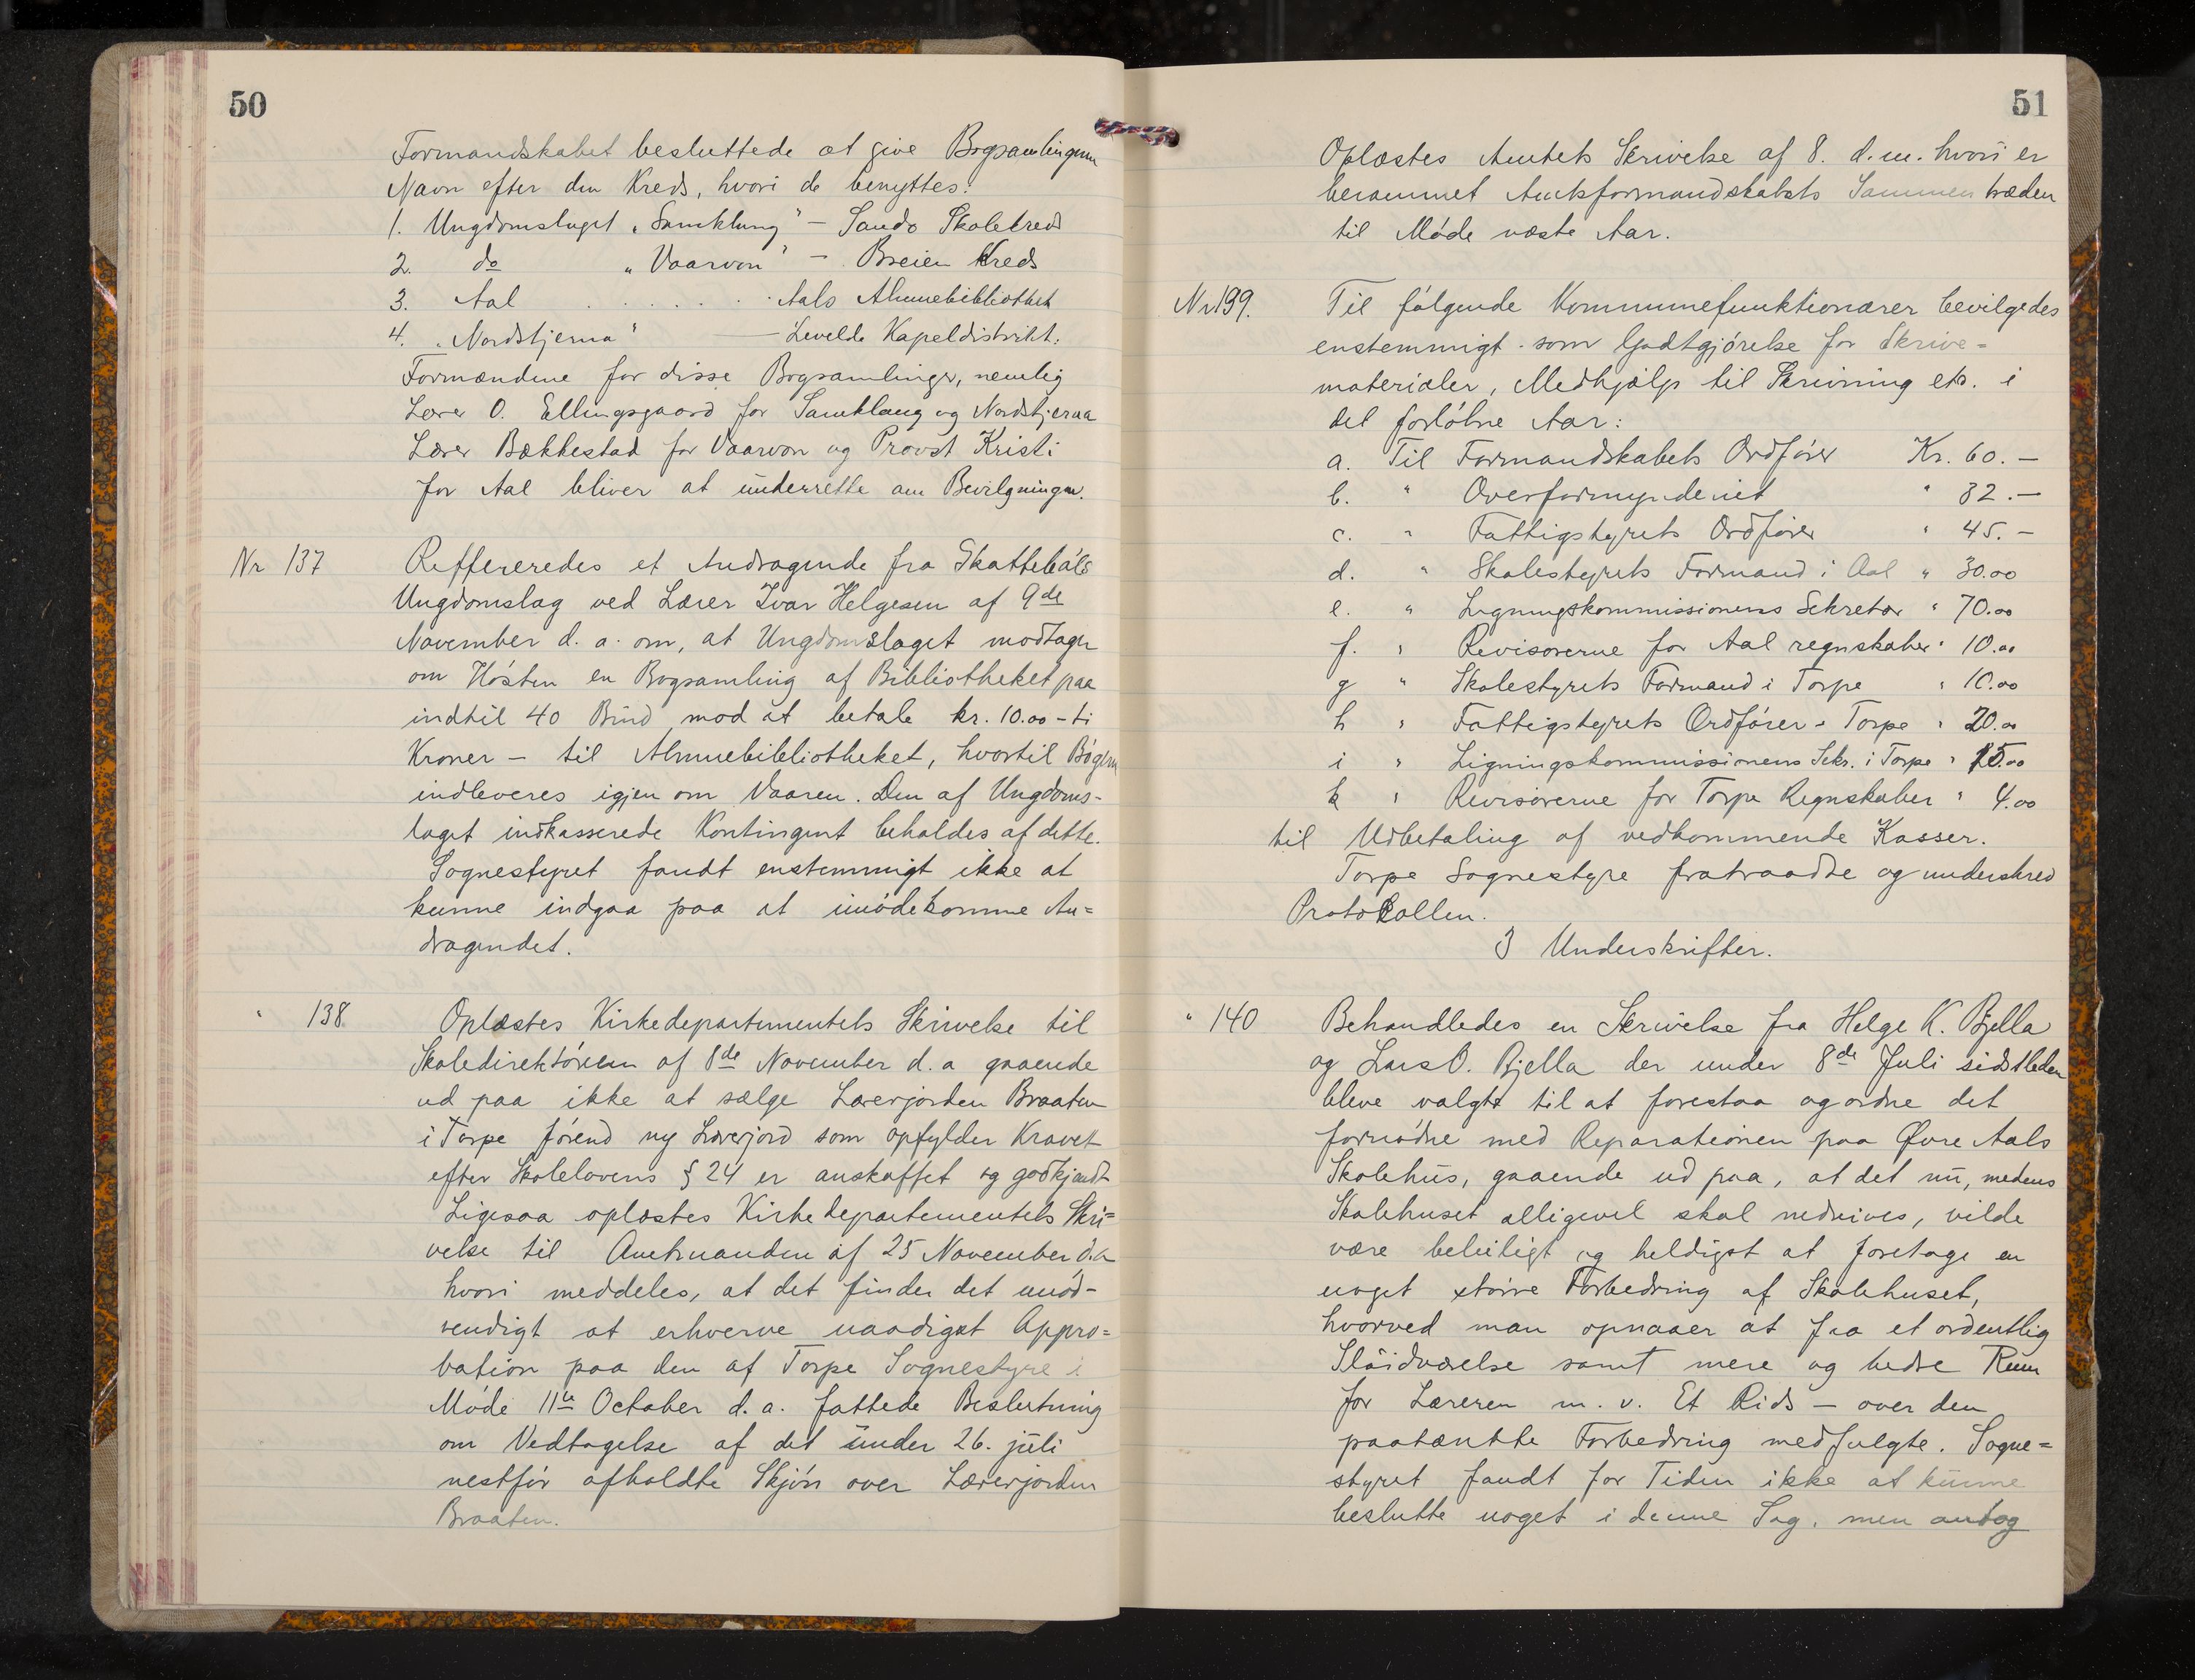 50
Formandskabet besluttede at give Bogsamlingerne
Navn efter den Kreds, hvori de benyttes:
1. Ungdomslaget „Samklang" – Sando Skolekreds
2. do „Vaarvon" – Breien Kreds
3. Aal . . . . . . Aals Almuebibliothek
4. „Nordstjerna" — Levelds Kapeldistrikt.
Formændene for disse Bogsamlinger, nemlig
Lærer O. Ellingsgaard for Samklang og Nordstjerna
Lærer Bækkestad for Vaarvon og Provst Kristi
for Aal bliver at underrette om Bevilgningen.
Nr 137 Reffereredes et Andragende fra Skattebøls
Ungdomslag ved Lærer Ivar Helgesen af 9de
November d. a. om, at Ungdomslaget modtager
om Høsten en Bogsamling af Bibliotheket paa
indtil 40 Bind mod at betale kr. 10.00 – ti
Kroner – til Almuebibliotheket, hvortil Bøgerne
indleveres igjen om Vaaren. Den af Ungdoms-
laget indkasserede Kontingent beholdes af dette.
Sognestyret fandt enstemmigt ikke at
kunne indgaa paa at imødekomme An=
dragendet.
" 138 Oplæstes Kirkedepartementets Skrivelse til
Skoledirektøren af 8de November d. a gaaende
ud paa ikke at sælge Lærerjorden Braaten
i Torpe førend ny Lærerjord som opfylder Kravet
efter Skolelovens § 24 er anskaffet og godkjendt
Ligesaa oplæstes Kirkedepartementets Skri=
velse til Amtmanden af 25 November d.a
hvori meddeles, at det finder det unød-
vendigt at erhverve naadigst Appro=
bation paa den af Torpe Sognestyre i
Møde 11te October d. a. fattede Beslutning
om Vedtagelse af det under 26. juli
nestfør afholdte Skjøn over Lærerjorden
Braaten.
51
Oplæstes Amtets Skrivelse af 8. d.m. hvori er
berammet Amtsformandskabets Sammentræden
til Møde næste Aar.
Nr 139. Til følgende Kommunefunktionærer bevilgedes
enstemmigt som Godtgjørelse for Skrive=
materialer, Medhjælp til Skrivning etc. i
det forløbne Aar:
a. Til Formandskabets Ordfører Kr. 60.—
b. " Overformynderiet " 32.—
c. " Fattigstyrets Ordfører " 45.—
d. " Skolestyrets Formand i Aal " 30.00
e. " Ligningskommissionens Sekretær " 70.00
f. " Revisorerne for Aal regnskaber " 10.00
g " Skolestyrets Formand i Torpe " 10.00
h " Fattigstyrets Ordfører - Torpe " 20.00
i " Ligningskommissionens Sekr. i Torpe " 15.00
k " Revisorerne for Torpe Regnskaber " 4.00
til Udbetaling af vedkommende Kasser.
Torpe Sognestyre fratraadte og underskrev
Protokollen.
3 Underskrifter.
" 140 Behandledes en Skrivelse fra Helge K. Bjella
og Lars O. Bjella der under 8de Juli sidstleden
bleve valgte til at forestaa og ordne det
fornødne med Reparationen paa Øvre Aals
Skolehus, gaaende ud paa, at det nu, medens
Skolehuset alligevel skal nedrives, vilde
være beleiligt og heldigst at foretage en
noget større Forbedring af Skolehuset,
hvorved man opnaaer at faa et ordentlig
Sløidværelse samt mere og bedre Rum
for Læreren m. v. Et Rids – over den
paatænkte Forbedring medfulgte. Sogne=
styret fandt for Tiden ikke at kunne
beslutte noget i denne Sag, men antog